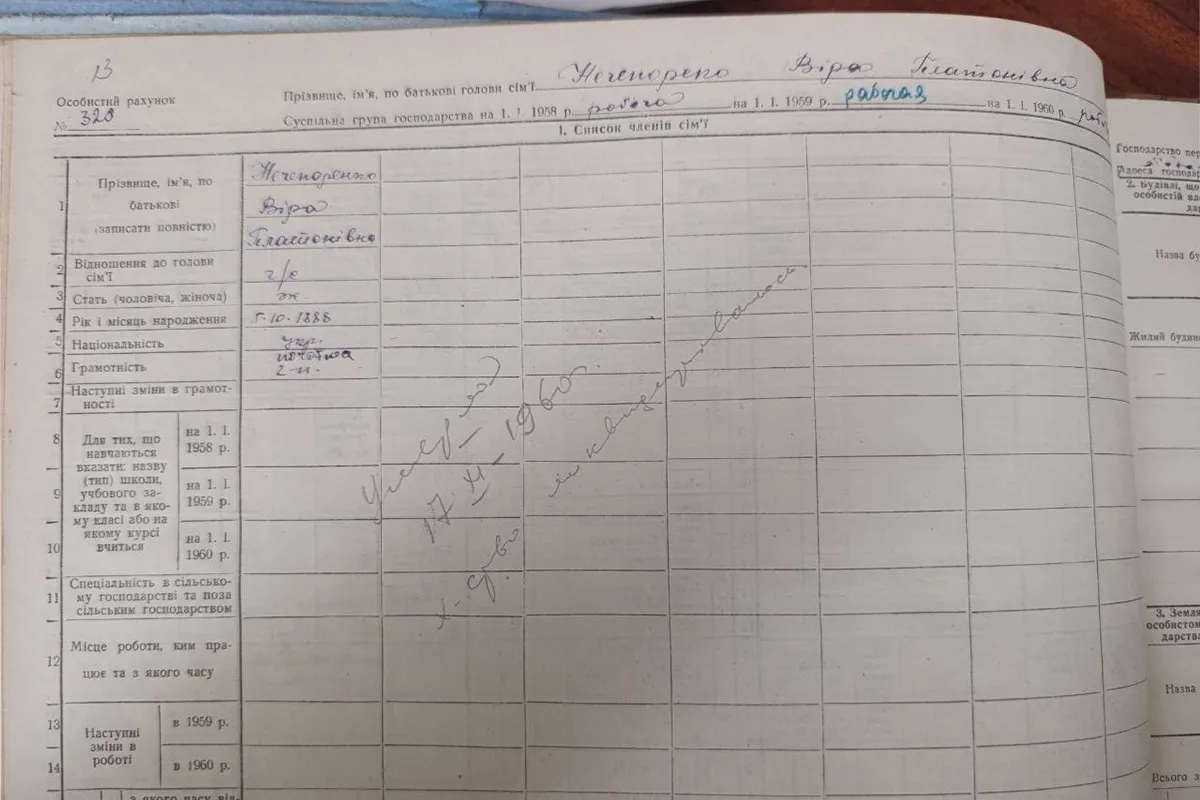 13
Особистий рахунок
№ 328
Прізвище, ім'я, по батькові голови сім'ї Нечепоренко Віра Платонівна
Суспільна група господарства на 1. I. 1958 р. робоча на 1. I. 1959 р. рабочая на 1. I. 1960 р.
I. Список членів сім'ї
1 Прізвище, ім'я, по батькові (записати повністю)
Нечепоренко
Віра
Платонівна
2 Відношення до голови сім'ї г/с
3 Стать (чоловіча, жіноча) ж.
4 Рік і місяць народження 5-10-1888
5 Національність укр.
6 Грамотність початкова 2-и.
7 Наступні зміни в грамотності
8 Для тих, що навчаються вказати: назву (тип) школи, учбового закладу та в якому класі або на якому курсі вчиться
на 1. I. 1958 р.
9 на 1. I. 1959 р.
10 на 1. I. 1960 р.
11 Спеціальність в сільському господарстві та поза сільським господарством
12 Місце роботи, ким працює та з якого часу
13 Наступні зміни в роботі
в 1959 р.
14 в 1960 р.
з якого часу від-
17 XI-1960г.
х-ство ликвидировалось
Господарство пер
Адреса господар
2. Будівлі, що
особистій вла
да
Назва бу
Жилий будин
3. Земля
особистом
дарства
Назва
Всього з